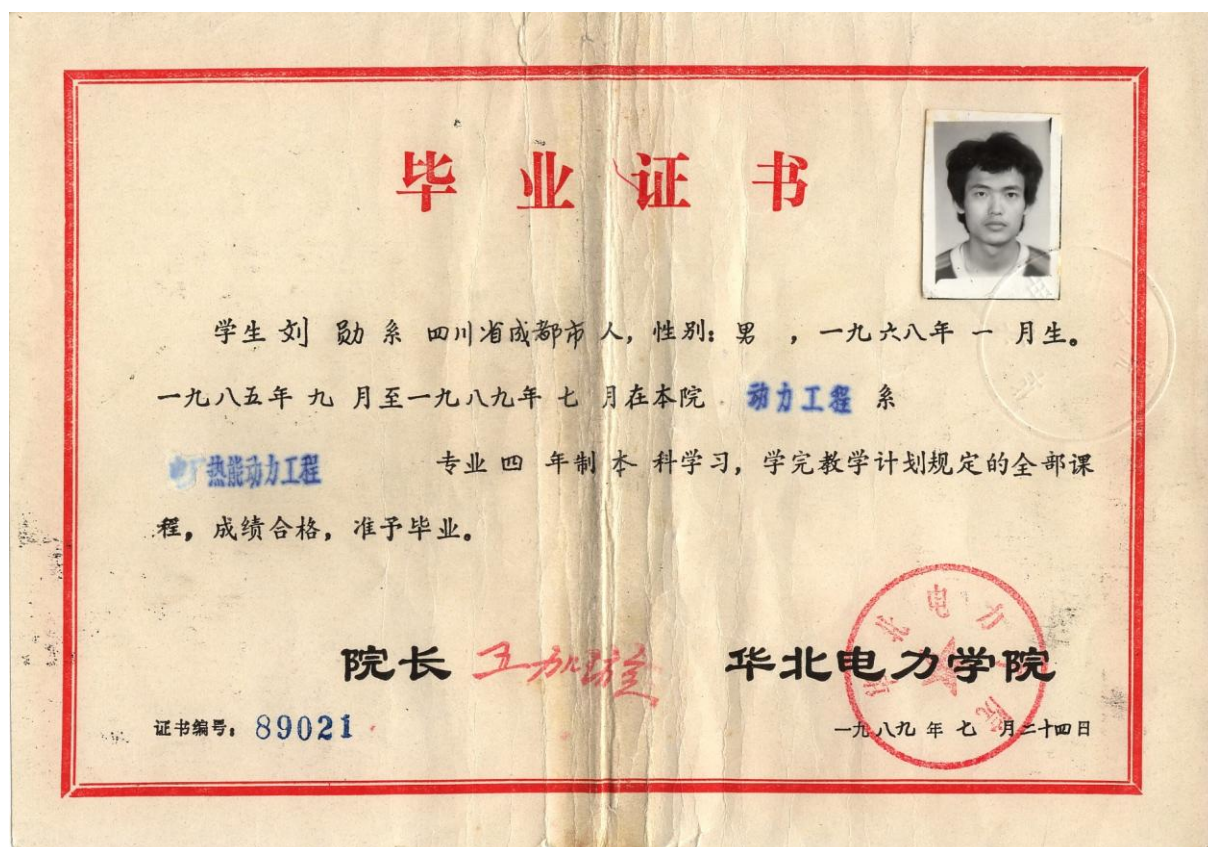 毕业证书
学生 刘 勋 系 四川省成都市 人，性别：男 ，一九六八年 一 月生。
一九八五年 九 月至一九八九年 七 月在本院 动力工程 系
电厂热能动力工程 专业 四 年制 本 科学习，学完教学计划规定的全部课
程，成绩合格，准予毕业。
院长 王加璇 华北电力学院
华北电力学院
证书编号：89021
一九八九 年 七 月二十四日